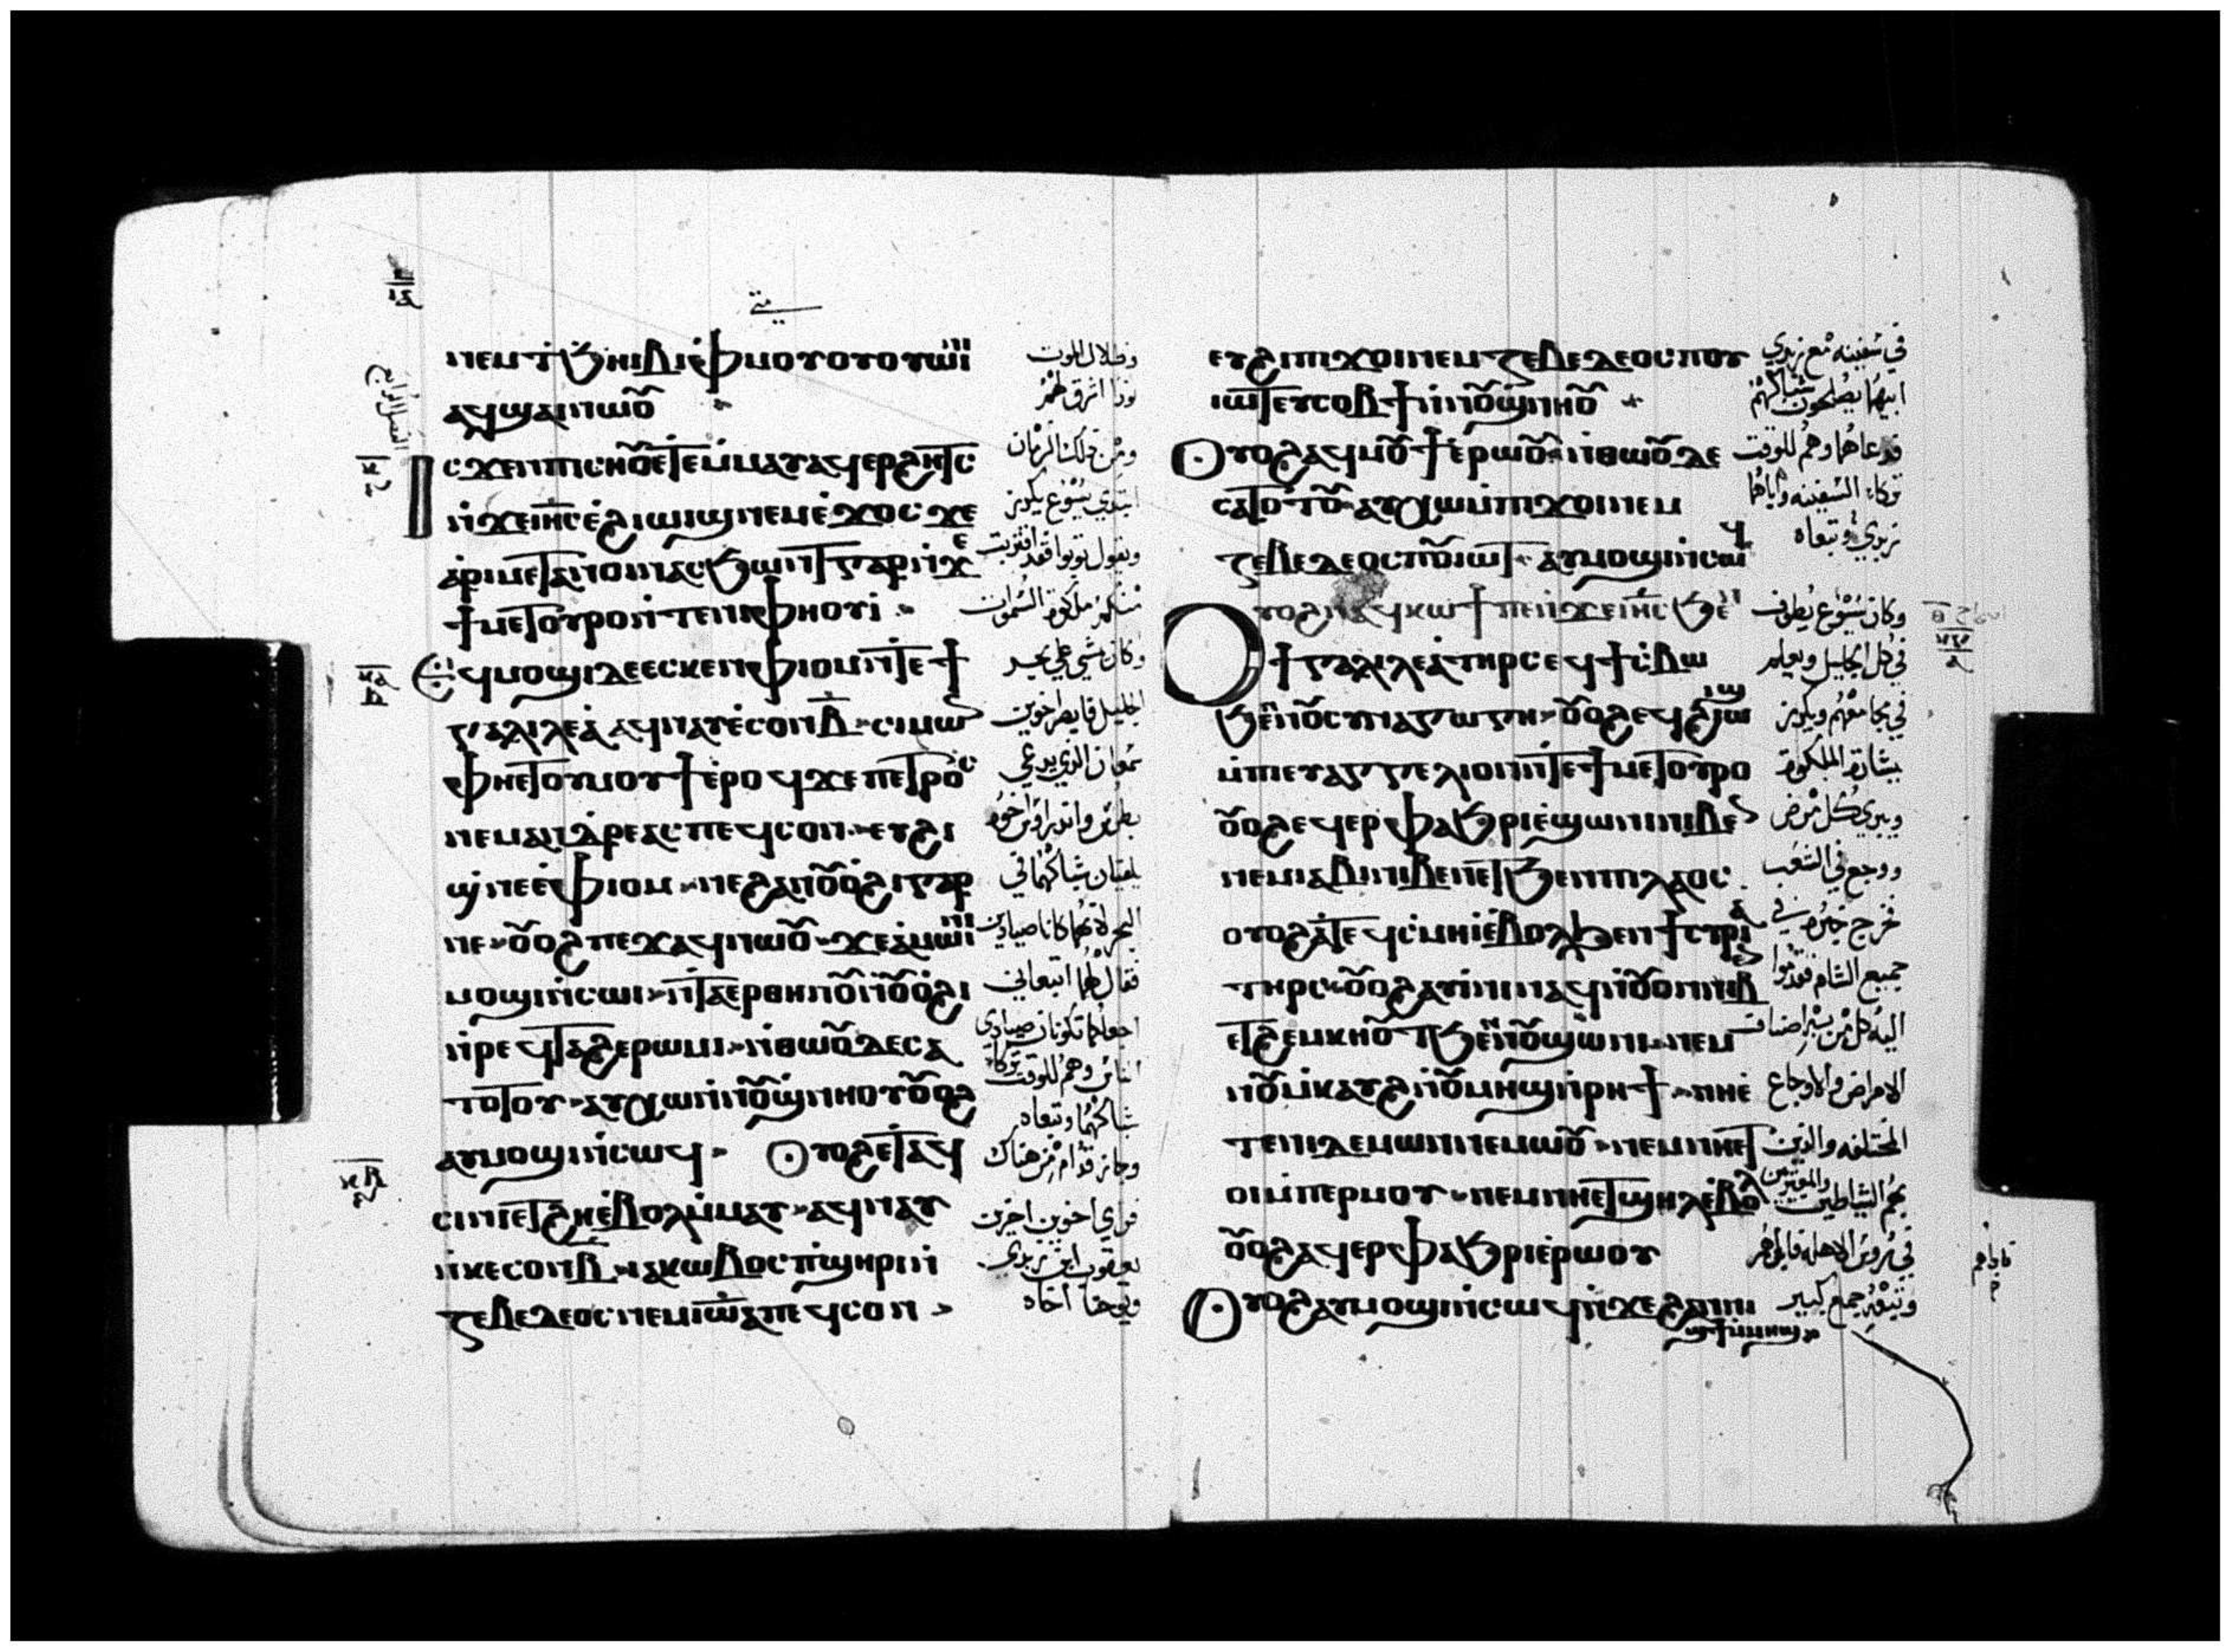 متى
ⲛⲉⲙⲧϧⲏⲓⲃⲓⲙ̀ⲫⲙⲟⲩⲟⲩⲟⲩⲱⲓⲛⲓ
ⲁϥϣⲁⲓⲛⲱⲟⲩ
ⲥϫⲉⲛⲡⲓⲥⲏⲟⲩⲉⲧⲉⲙ̀ⲙⲁⲩⲁϥⲉⲣϩⲏⲧⲥ
ⲛ̀ϫⲉⲓⲏⲥⲉ̀ϩⲓⲱⲓϣⲛⲉⲙⲉ̀ϫⲟⲥϫⲉ
ⲁⲣⲓⲙⲉⲧⲁⲛⲟⲓⲛⲁⲥϧⲱⲛⲧⲅⲁⲣⲛ̀ϫⲉ
ϯⲙⲉⲧⲟⲩⲣⲟⲛ̀ⲧⲉⲛⲓⲫⲏⲟⲩⲓ
ⲉϥⲙⲟϣⲓⲇⲉⲉⲥⲕⲉⲛⲫⲓⲟⲙⲛ̀ⲧⲉϯ
ⲅⲁⲗⲓⲗⲉⲁ̀ⲁϥⲛⲁⲩⲉ̀ⲥⲟⲛⲃ̅ ⲥⲓⲙⲱⲛ
ⲫⲏⲉⲧⲟⲩⲙⲟⲩϯⲉ̀ⲣⲟϥϫⲉⲡⲉⲧⲣⲟⲥ
ⲛⲉⲙⲁⲛⲇⲣⲉⲁⲥⲡⲉϥⲥⲟⲛ ⲉⲩϩⲓ
ϣⲛⲉⲉ̀ⲫⲓⲟⲙ ⲛⲉϩⲁⲛⲟⲩⲟϩⲓⲅⲁⲣ
ⲛⲉ ⲟⲩⲟϩⲡⲉϫⲁϥⲛⲱⲟⲩ ϫⲉⲁ̀ⲙⲱⲓⲛⲓ
ⲙⲟϣⲓⲛ̀ⲥⲱⲓ ⲛ̀ⲧⲁⲉⲣⲑⲏⲛⲟⲩⲛ̀ⲟⲩⲟϩⲓ
ⲛ̀ⲣⲉϥⲧⲁϩⲉⲣⲱⲙⲓ ⲛ̀ⲑⲱⲟⲩⲇⲉⲥⲁ
ⲧⲟⲧⲟⲩ ⲁⲩⲭⲱⲛ̀ⲛⲟⲩϣⲛⲏⲟⲩⲟⲩⲟϩ
ⲁⲩⲙⲟϣⲓⲛ̀ⲥⲱϥ ⲟⲩⲟϩⲉⲧⲁϥ
ⲥⲓⲛⲓⲉⲧϩⲏⲉ̀ⲃⲟⲗⲙ̀ⲙⲁⲩ ⲁϥⲛⲁⲩ
ⲛ̀ⲕⲉⲥⲟⲛⲃ̅ ⲓⲁⲕⲱⲃⲟⲥⲡ̀ϣⲏⲣⲓⲛ̀
ⲍⲉⲃⲉⲇⲉⲟⲥⲛⲉⲙⲓⲱⲁⲡⲉϥⲥⲟⲛ
وظلال الموت
نورا اشرق لهم
ومن ذلك الزمان
ابتدي يسوع يكرز
ويقول توبوا فقد اقتربت
منكم ملكوة السموات
وكان يمشي على بحر
الجليل فابصر اخوين
سمعان الذي يدعى
بطرس واندراوس اخوه
يلقيان شباكهما في
البحر لانهما كانا صيادين
فقال لهما اتبعاني
اجعلكما تكونان صيادي
الناس وهم للوقت تركا
شباكهما وتبعاه
وجاز قدام من هناك
فراي اخوين اخرين
يعقوب ابن زبدي
ويوحنا اخاه
ⲉⲩϩⲓⲡⲓϫⲟⲓⲛⲉⲙⲍⲉⲃⲉⲇⲉⲟⲥⲡⲟⲩ
ⲓⲱⲧⲉⲩⲥⲟⲃϯⲛ̀ⲛⲟⲩϣⲛⲏⲟⲩ
ⲟⲩⲟϩⲁϥⲙⲟⲩϯⲉ̀ⲣⲱⲟⲩ ⲛ̀ⲑⲱⲟⲩⲇⲉ
ⲥⲁⲧⲟⲧⲟⲩ ⲁⲩⲭⲱⲙ̀ⲡⲓϫⲟⲓⲛⲉⲙ
ⲍⲉⲃⲉⲇⲉⲟⲥⲡⲟⲩⲓⲱⲧ ⲁⲩⲙⲟϣⲓⲛ̀ⲥⲱϥ
ⲟⲩⲟϩⲛⲁϥⲕⲱϯⲡⲉⲛ̀ϫⲉⲓⲏⲥϧⲉⲛ
ϯⲅⲁⲗⲓⲗⲉⲁ̀ⲧⲏⲣⲥⲉϥϯⲥ̀ⲃⲱ
ϧⲉⲛⲛⲟⲩⲥⲩⲛⲁⲅⲱⲅⲏ ⲟⲩⲟϩⲉϥϩⲓⲱⲓϣ
ⲙ̀ⲡⲓⲉⲩⲁⲅⲅⲉⲗⲓⲟⲛⲛ̀ⲧⲉϯⲙⲉⲧⲟⲩⲣⲟ
ⲟⲩⲟϩⲉϥⲉⲣⲫⲁϧⲣⲓⲉ̀ϣⲱⲛⲓⲛⲓⲃⲉⲛ
ⲛⲉⲙⲓⲁⲃⲓⲛⲓⲃⲉⲛⲉⲧϧⲉⲛⲡⲓⲗⲁⲟⲥ
ⲟⲩⲟϩⲁ̀ⲧⲉϥⲥ̀ⲙⲏⲓⲉ̀ⲃⲟⲗϧⲉⲛϯⲥⲩⲣⲓⲁ
ⲧⲏⲣⲥ ⲟⲩⲟϩⲁⲩⲓ̀ⲛⲓⲛⲁϥⲛ̀ⲟⲩⲟⲛⲛⲓⲃⲉⲛ
ⲉⲧϩⲉⲙⲕⲏⲟⲩⲧϧⲉⲛⲛⲟⲩϣⲱⲛⲓ ⲛⲉⲙ
ⲛⲟⲩⲙ̀ⲕⲁⲩϩⲛ̀ⲟⲩⲙⲏϣⲛ̀ⲣⲏϯ ⲛⲏⲉ̀
ⲧⲉⲛⲓⲇⲉⲙⲱⲛⲛⲉⲙⲱⲟⲩ ⲛⲉⲙⲛⲏⲉⲧ
ⲟⲓⲙ̀ⲡⲉⲣⲙⲟⲩ ⲛⲉⲙⲛⲏⲉⲧϣⲏⲗⲉ̀ⲃⲟⲗ
ⲟⲩⲟϩⲁϥⲉⲣⲫⲁϧⲣⲓⲉ̀ⲣⲱⲟⲩ
ⲟⲩⲟϩⲁⲩⲙⲟϣⲓⲛ̀ⲥⲱϥⲛ̀ϫⲉϩⲁⲛⲛⲓ
ϣϯⲙ̀ⲙⲏϣ
في سفينه مع زبدي
ابيهما يصلحون شباكهم
فدعاهما وهم للوقت
تركا السفينه واباهما
زبدي وتبعاه
وكان يسوع يطوف
في كل الجليل ويعلم
في مجامعهم ويكرز
ببشارة الملكوة
ويبري كل مرض
ووجع في الشعب
فخرج خبره في
جميع الشام فقدموا
اليه كل من به اصناف
الامراض والاوجاع
المختلفه والذين
بهم الشياطين والمعترين
في روس الاهله فابراهم
وتبعه جمع كبير